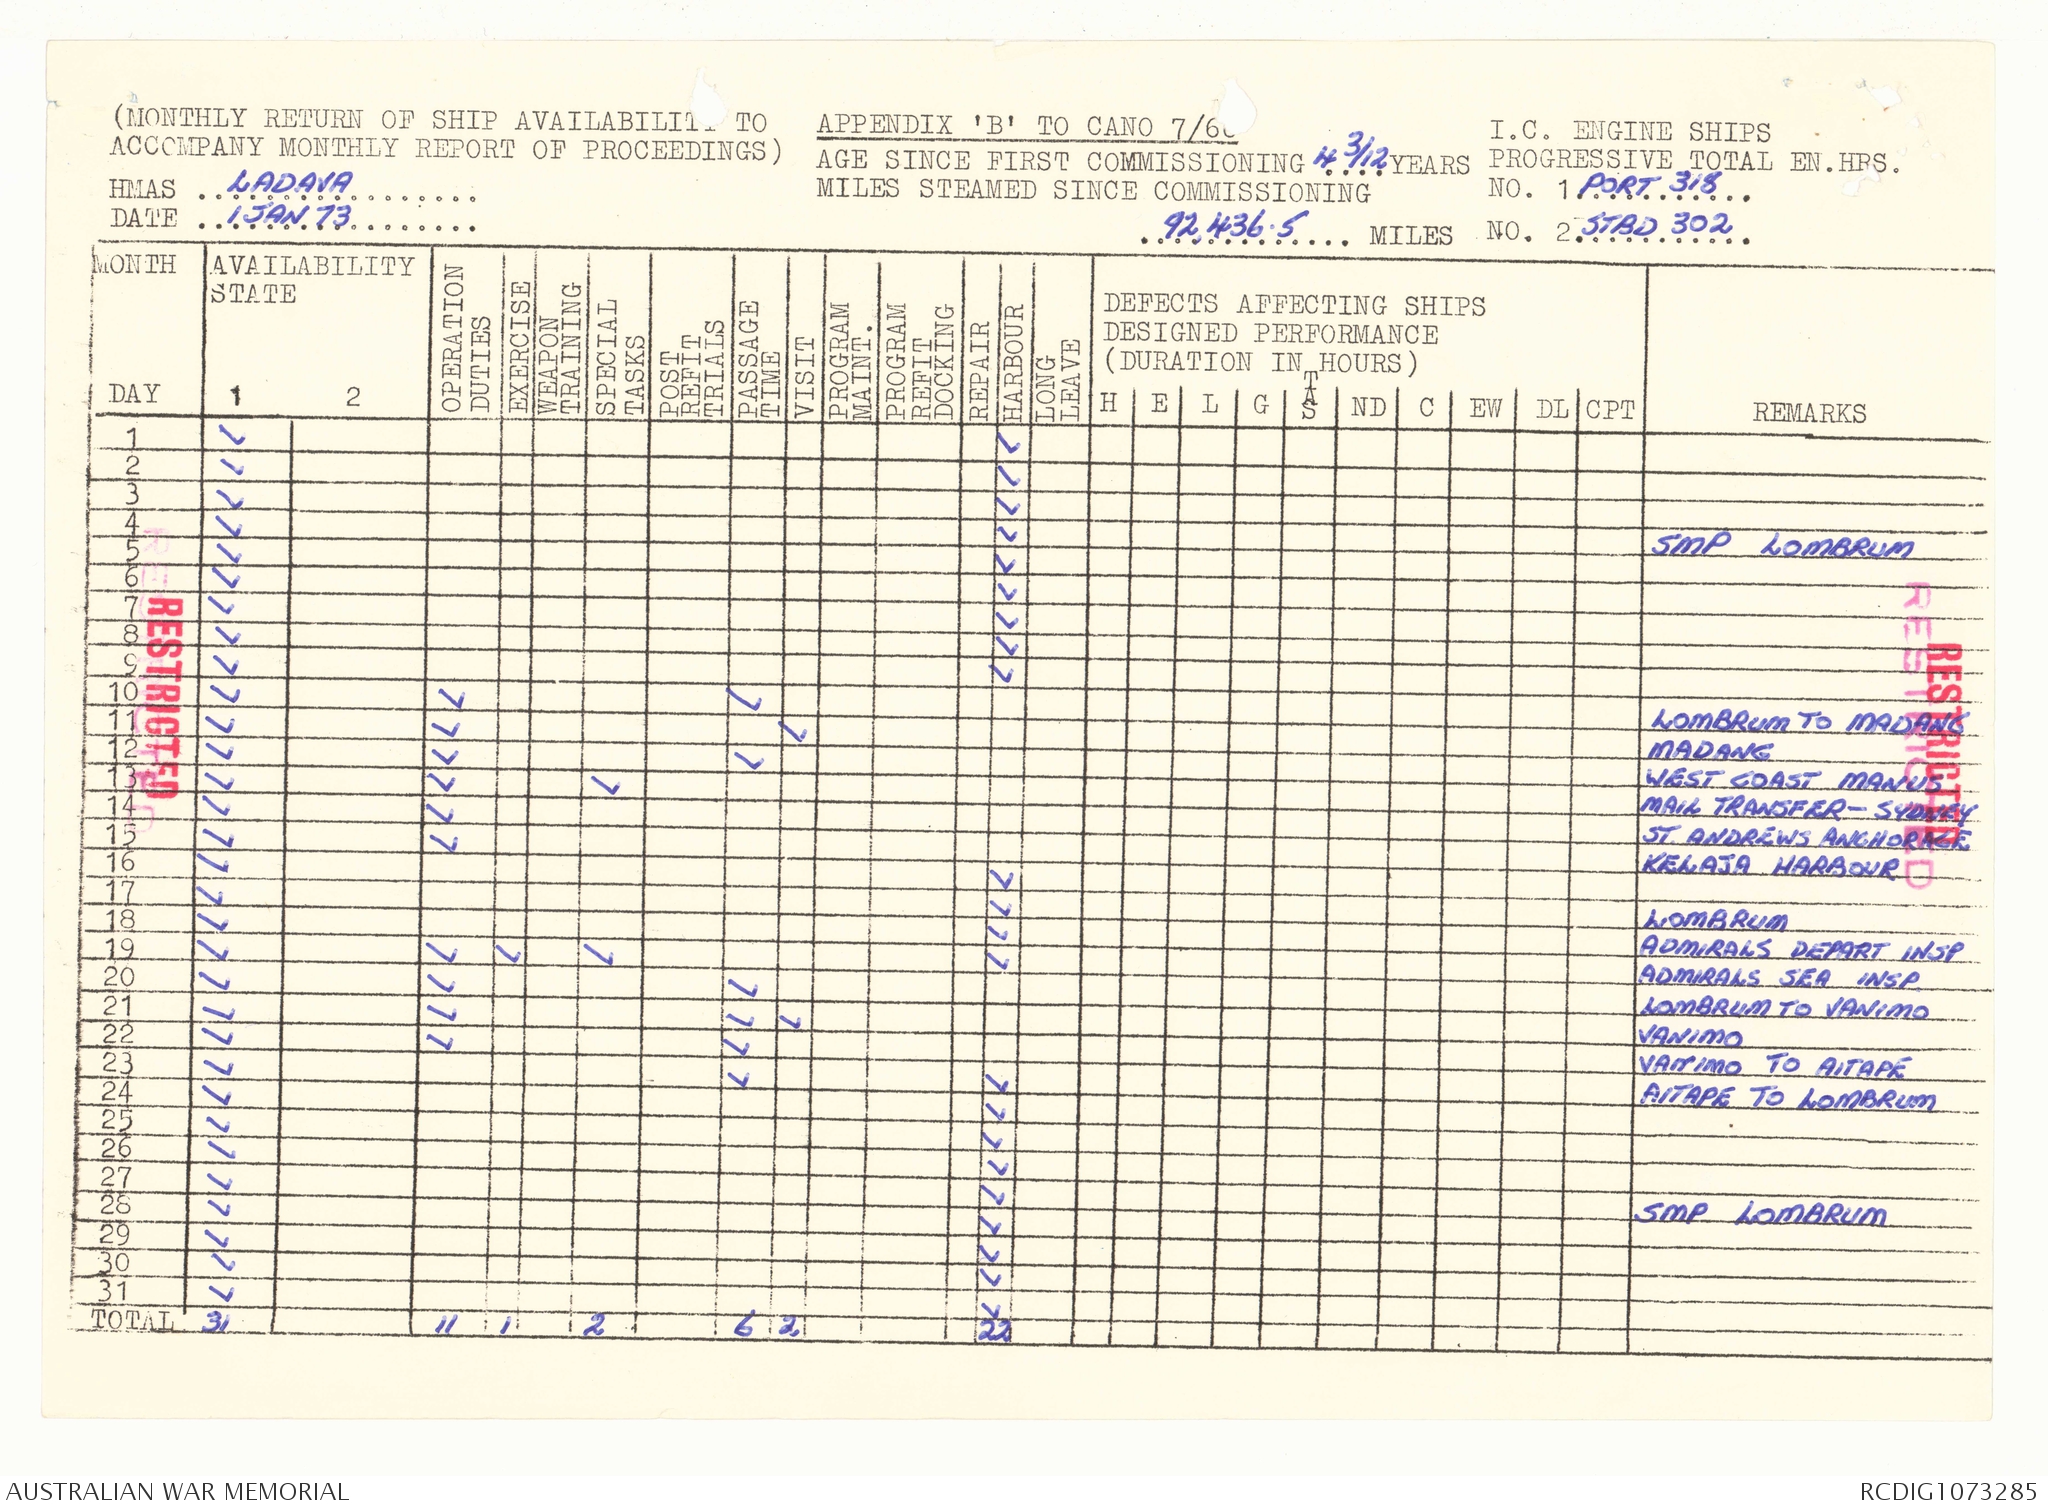 (MONTHLY RETURN OF SHIP AVAILABILIT TO
ACCOMPANY MONTHLY REPORT OF PROCEEDINGS)
HMAS LADAVA
DATE 1 JAN 73
APPENDIX 'B' TO CANO 7/66
AGE SINCE FIRST COMMISSIONING 4 3/12 YEARS
MILES STEAMED SINCE COMMISSIONING
92,436.5 MILES
I.C. ENGINE SHIPS
PROGRESSIVE TOTAL EN.HRS.
NO. 1 PORT 318
NO. 2 STBD 302
MONTH
DAY
AVAILABILITY
STATE
1 2
OPERATION
DUTIES
EXERCISE
WEAPON
TRAINING
SPECIAL
TASKS
POST
REFIT
TRIALS
PASSAGE
TIME
VISIT
PROGRAM
MAINT.
PROGRAM
REFIT
DOCKING
REPAIR
HARBOUR
LONG
LEAVE
DEFECTS AFFECTING SHIPS
DESIGNED PERFORMANCE
(DURATION IN HOURS)
H E L G TAS ND C EW DL CPT
REMARKS
1
2
3
4
5 SMP LOMBRUM
6
7
8
9
10
11 LOMBRUM TO MADANG
12 MADANG
13 WEST COAST MANUS
14 MAIL TRANSFER - SYDNEY
15 ST. ANDREWS ANCHORAGE
16 KELAJA HARBOUR
17
18 LOMBRUM
19 ADMIRALS DEPART INSP
20 ADMIRALS SEA INSP.
21 LOMBRUM TO VANIMO
22 VANIMO
23 VANIMO TO AITAPE
24 AITAPE TO LOMBRUM
25
26
27
28 SMP LOMBRUM
29
30
31
TOTAL 31 11 1 2 6 2 22
RESTRICTED
RESTRICTED
RESTRICTED
RESTRICTED
AUSTRALIAN WAR MEMORIAL
RCDIG1073285